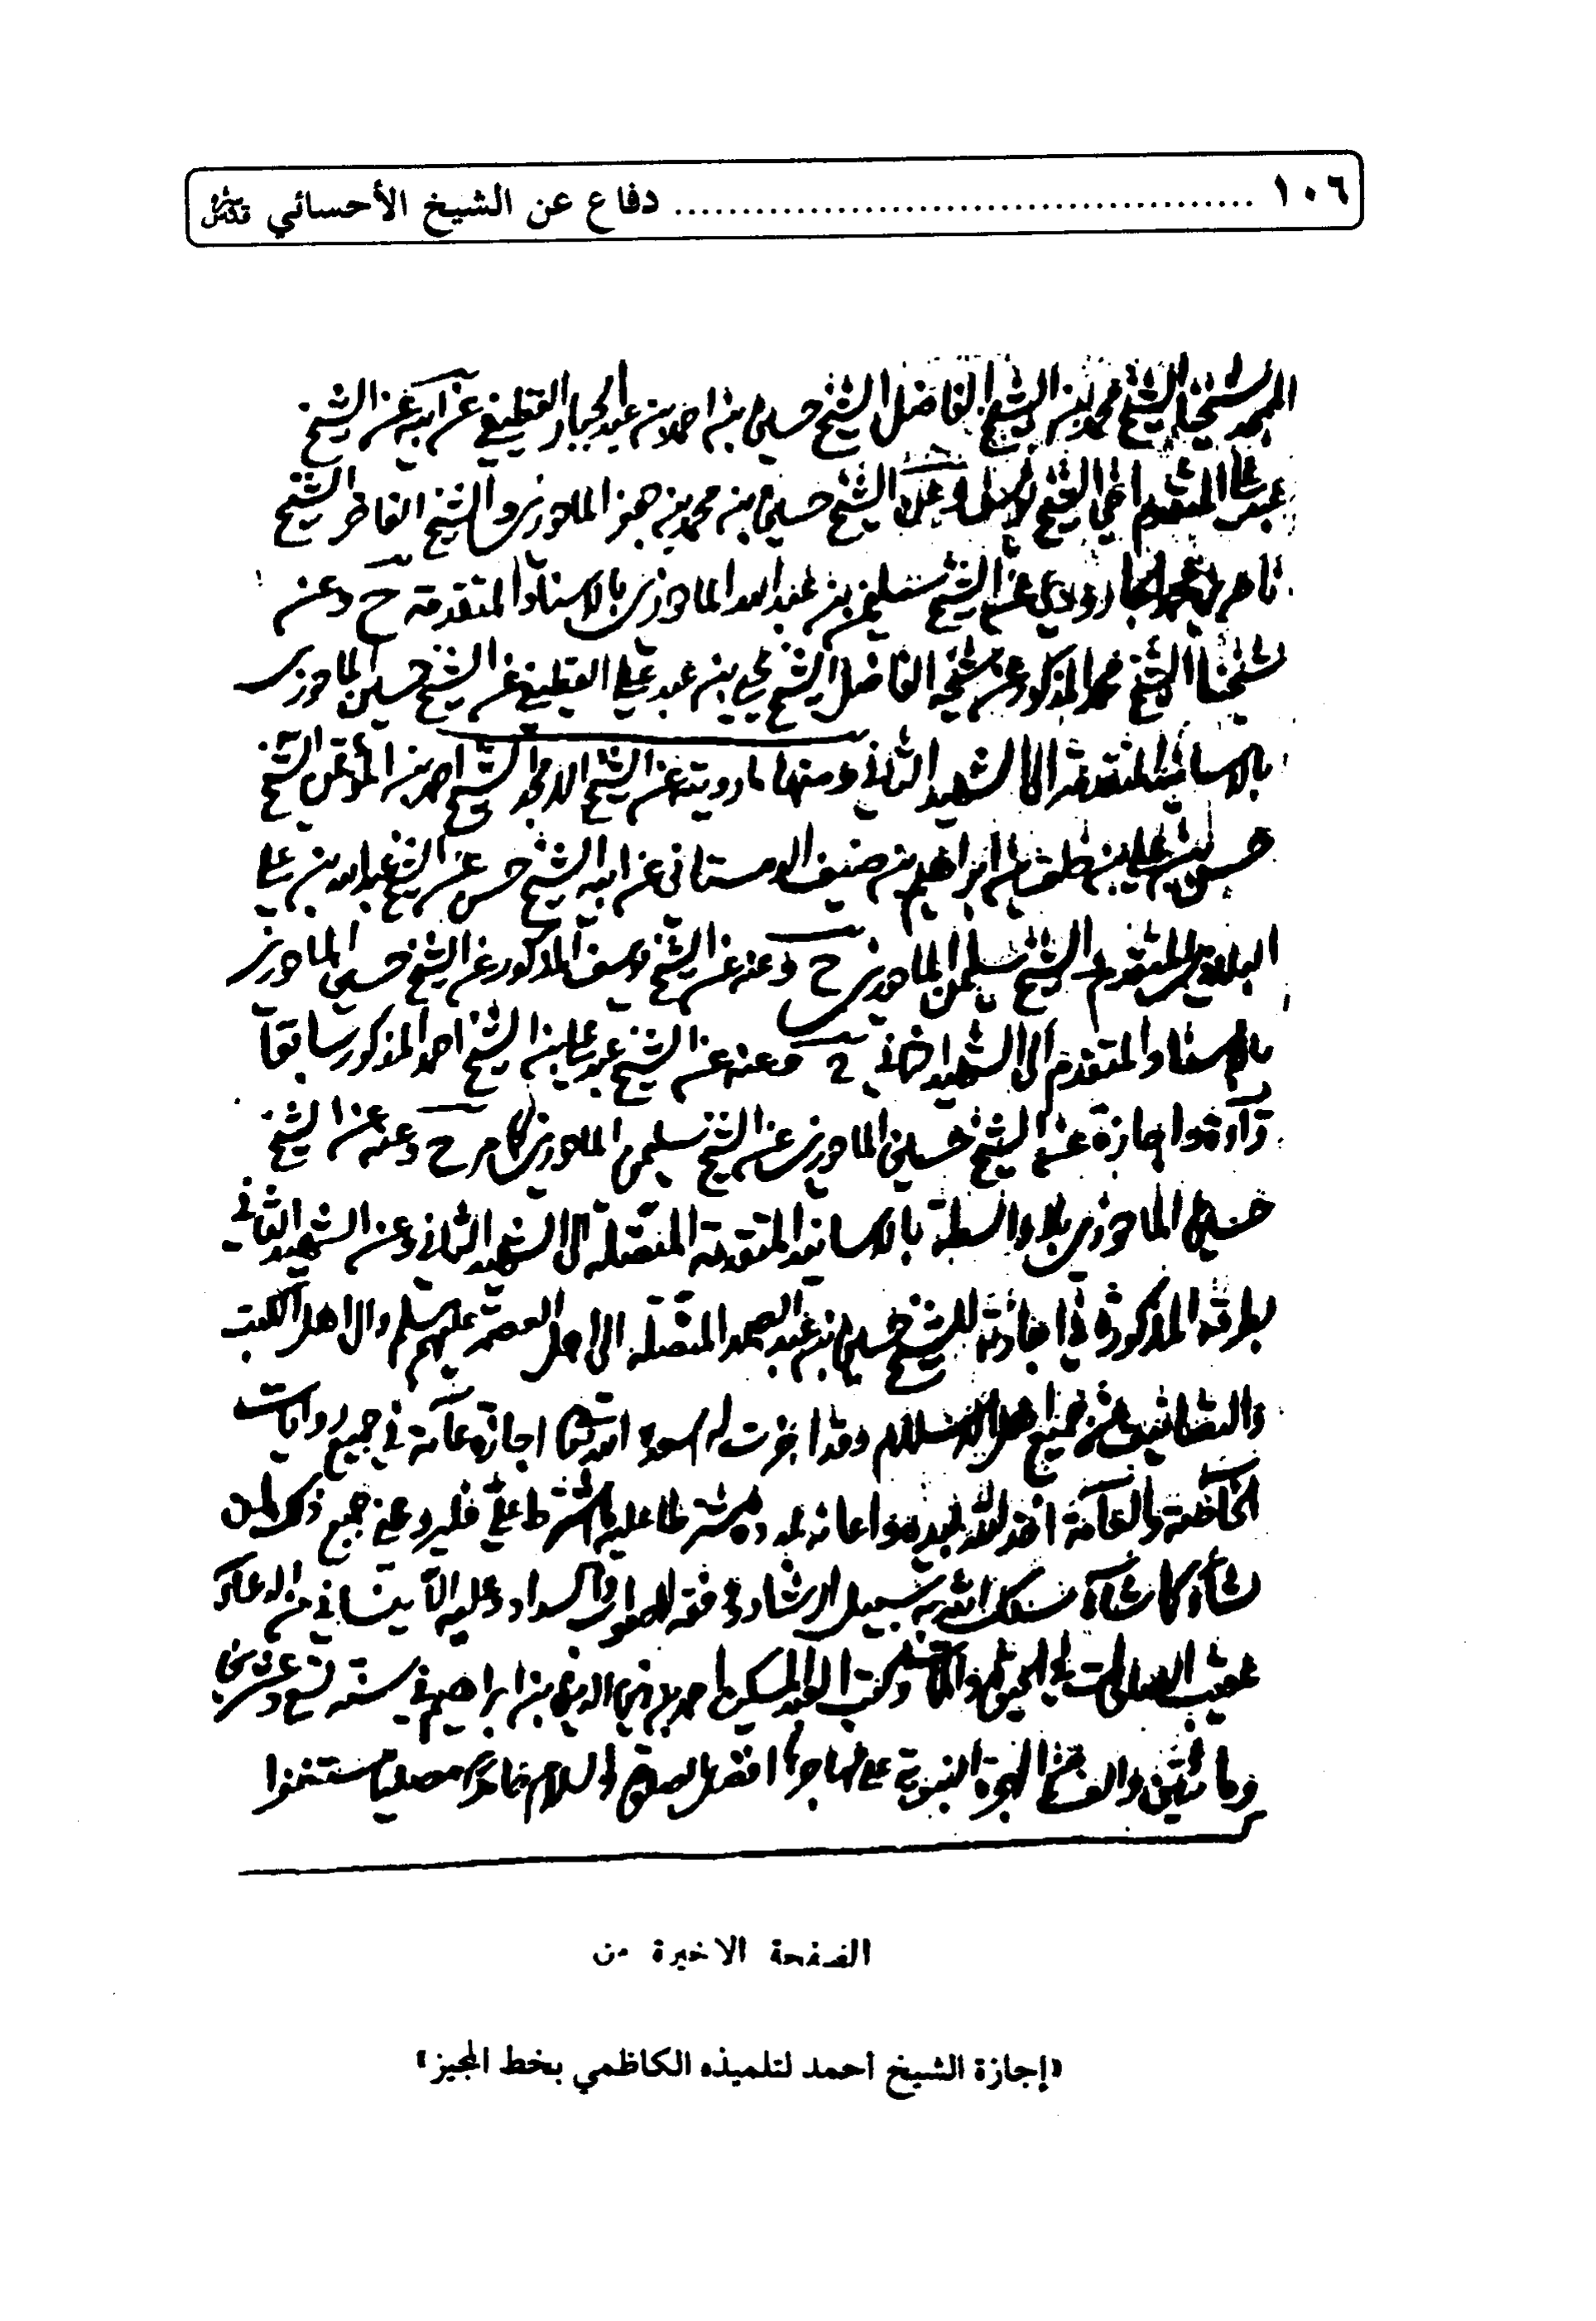 ١٠٦ ........................................ دفاع عن الشيخ الأحسائي قدس سره
شيخنا الشيخ محمد بن الشيخ الفاضل الشيخ حسين بن احمد بن عبد الجبار القطيفي عن ابيه عن الشيخ
المتقدم الشيخ حسين بن محمد بن جعفر الماحوزي والشيخ الفاخر الشيخ
ناصر بن محمد الجارودي عن الشيخ سليمن بن عبد الله الماحوزي بالاسناد المتقدمة ح وعن
شيخنا الشيخ محمد المذكور عن شيخه الفاضل الشيخ يحيى بن عبد علي القطيفي عن الشيخ حسين الماحوزي
بالاسانيد المتقدمة الى الشهيد الثاني ومنها ما رويته عن الشيخ الامجد الشيخ احمد بن المؤتمن الشيخ
حسن بن علي بن خلف بن ابراهيم بن ضيف الله الدمستاني عن ابيه الشيخ حسن عن الشيخ عبد الله بن علي
البلادي المتقدم عن الشيخ سليمن الماحوزي ح وعنه عن الشيخ يوسف المذكور عن الشيخ حسين الماحوزي
بالاسناد المتقدم الى الشهيد الثاني ح وعنه عن الشيخ عبد علي بن الشيخ احمد المذكور سابقا
قرآءة واجازة عن الشيخ حسين الماحوزي عن الشيخ سليمن الماحوزي كما مر ح وعنه عن الشيخ
حسين الماحوزي بلا واسطة بالاسانيد المتقدمة المتصلة الى الشهيد الثاني وعن الشهيد الثاني
بطرقه المذكورة في اجازته للشيخ حسين بن عبد الصمد المتصلة الى اهل العصمة عليهم السلم والى اهل الكتب
والتصانيف من جميع اهل الاسلام وقد اجزت له اسعده الله تعالى اجازة عامة في جميع روايات
الخاصة والعامة مشترطا عليه ما اشترط علي فليرو عني جميع ذلك لمن
شآء كما شآء سلك الله به سبيل الرشاد ووفقه للصواب والسداد وعليه الا ينساني من الدعآء
عقيب الصلوات في الحيوة والممات وكتب العبد المسكين احمد بن زين الدين بن ابراهيم في سنة تسع وعشرين
ومائتين والف من الهجرة النبوية على مهاجرها افضل الصلوة والسلام حامدا مصليا مستغفرا
الصفحة الاخيرة من
«إجازة الشيخ أحمد لتلميذه الكاظمي بخط المجيز»